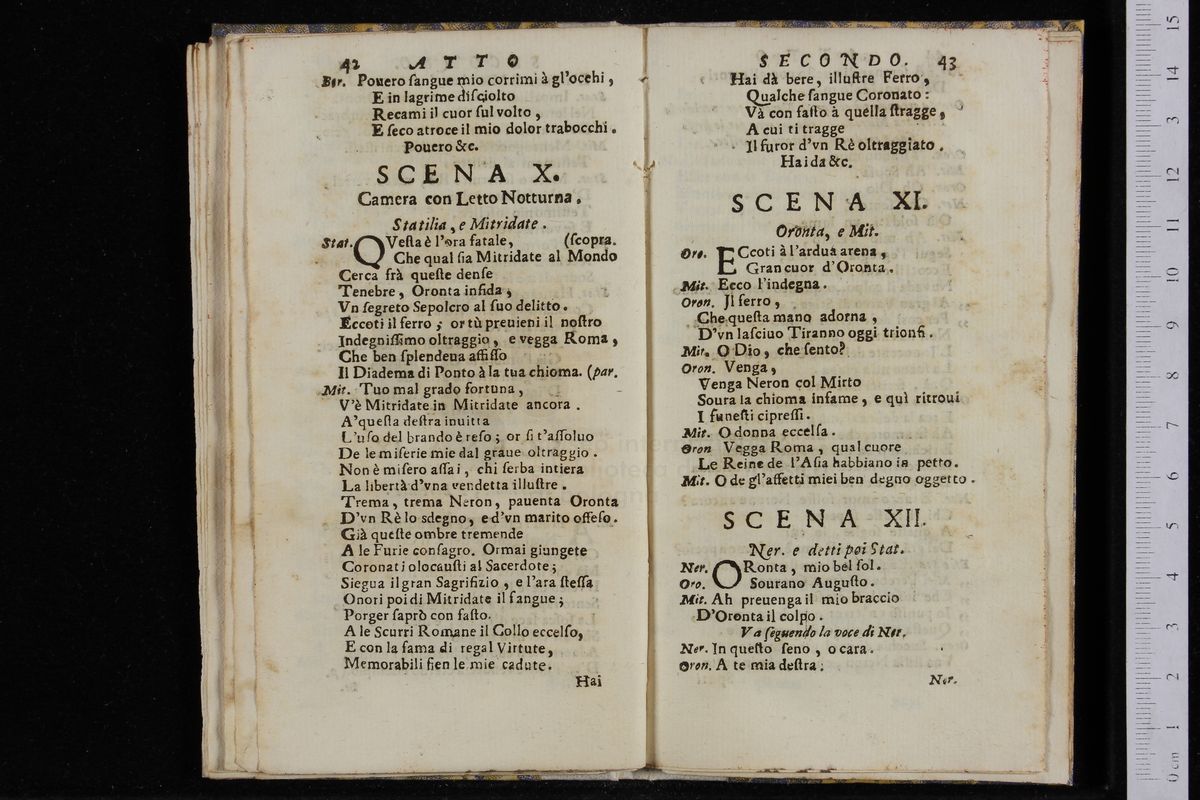 42 ATTO
Ber. Pouero ſangue mio corrimi à gl'occhi,
E in lagrime diſciolto
Recami il cuor ſul volto,
E ſeco atroce il mio dolor trabocchi.
Pouero &c.
SCENA X.
Camera con Letto Notturna.
Statilia, e Mitridate.
Stat. QVeſta è l'ora fatale, (ſcopra.
Che qual ſia Mitridate al Mondo
Cerca frà queſte denſe
Tenebre, Oronta infida,
Vn ſegreto Sepolcro al ſuo delitto.
Eccoti il ferro; or tù preuieni il noſtro
Indegniſſimo oltraggio, e vegga Roma,
Che ben ſplendeua affiſſo
Il Diadema di Ponto à la tua chioma. (par.
Mit. Tuo mal grado fortuna,
V'è Mitridate in Mitridate ancora.
A'queſta deſtra inuitta
L'uſo del brando è reſo; or ſi t'aſſoluo
De le miſerie mie dal graue oltraggio.
Non è miſero aſſai, chi ſerba intiera
La libertà d'vna vendetta illuſtre.
Trema, trema Neron, pauenta Oronta
D'vn Rè lo sdegno, e d'vn marito offeſo.
Già queſte ombre tremende
A le Furie conſagro. Ormai giungete
Coronati olocauſti al Sacerdote;
Siegua il gran Sagrifizio, e l'ara ſteſſa
Onori poi di Mitridate il ſangue;
Porger ſaprò con faſto.
A le Scurri Romane il Collo eccelſo,
E con la fama di regal Virtute,
Memorabili fien le mie cadute.
Hai
SECONDO. 43
Hai dà bere, illuſtre Ferro,
Qualche ſangue Coronato:
Và con faſto à quella ſtragge,
A cui ti tragge
Il furor d'vn Rè oltraggiato.
Hai da &c.
SCENA XI.
Oronta, e Mit.
Oro. ECcoti à l'ardua arena,
Gran cuor d'Oronta.
Mit. Ecco l'indegna.
Oron. Il ferro,
Che queſta mano adorna,
D'vn laſciuo Tiranno oggi trionfi.
Mit. O Dio, che ſento?
Oron. Venga,
Venga Neron col Mirto
Soura la chioma infame, e quì ritroui
I funeſti cipreſſi.
Mit. O donna eccelſa.
Oron Vegga Roma, qual cuore
Le Reine de l'Aſia habbiano in petto.
Mit. O de gl'affetti miei ben degno oggetto.
SCENA XII.
Ner. e detti poi Stat.
Ner. ORonta, mio bel ſol.
Oro. Sourano Auguſto.
Mit. Ah preuenga il mio braccio
D'Oronta il colpo.
Va ſeguendo la voce di Ner.
Ner. In queſto ſeno, o cara.
Oron. A te mia deſtra:
Ner.
15
14
13
12
11
10
9
8
7
6
5
4
3
2
1
0 cm